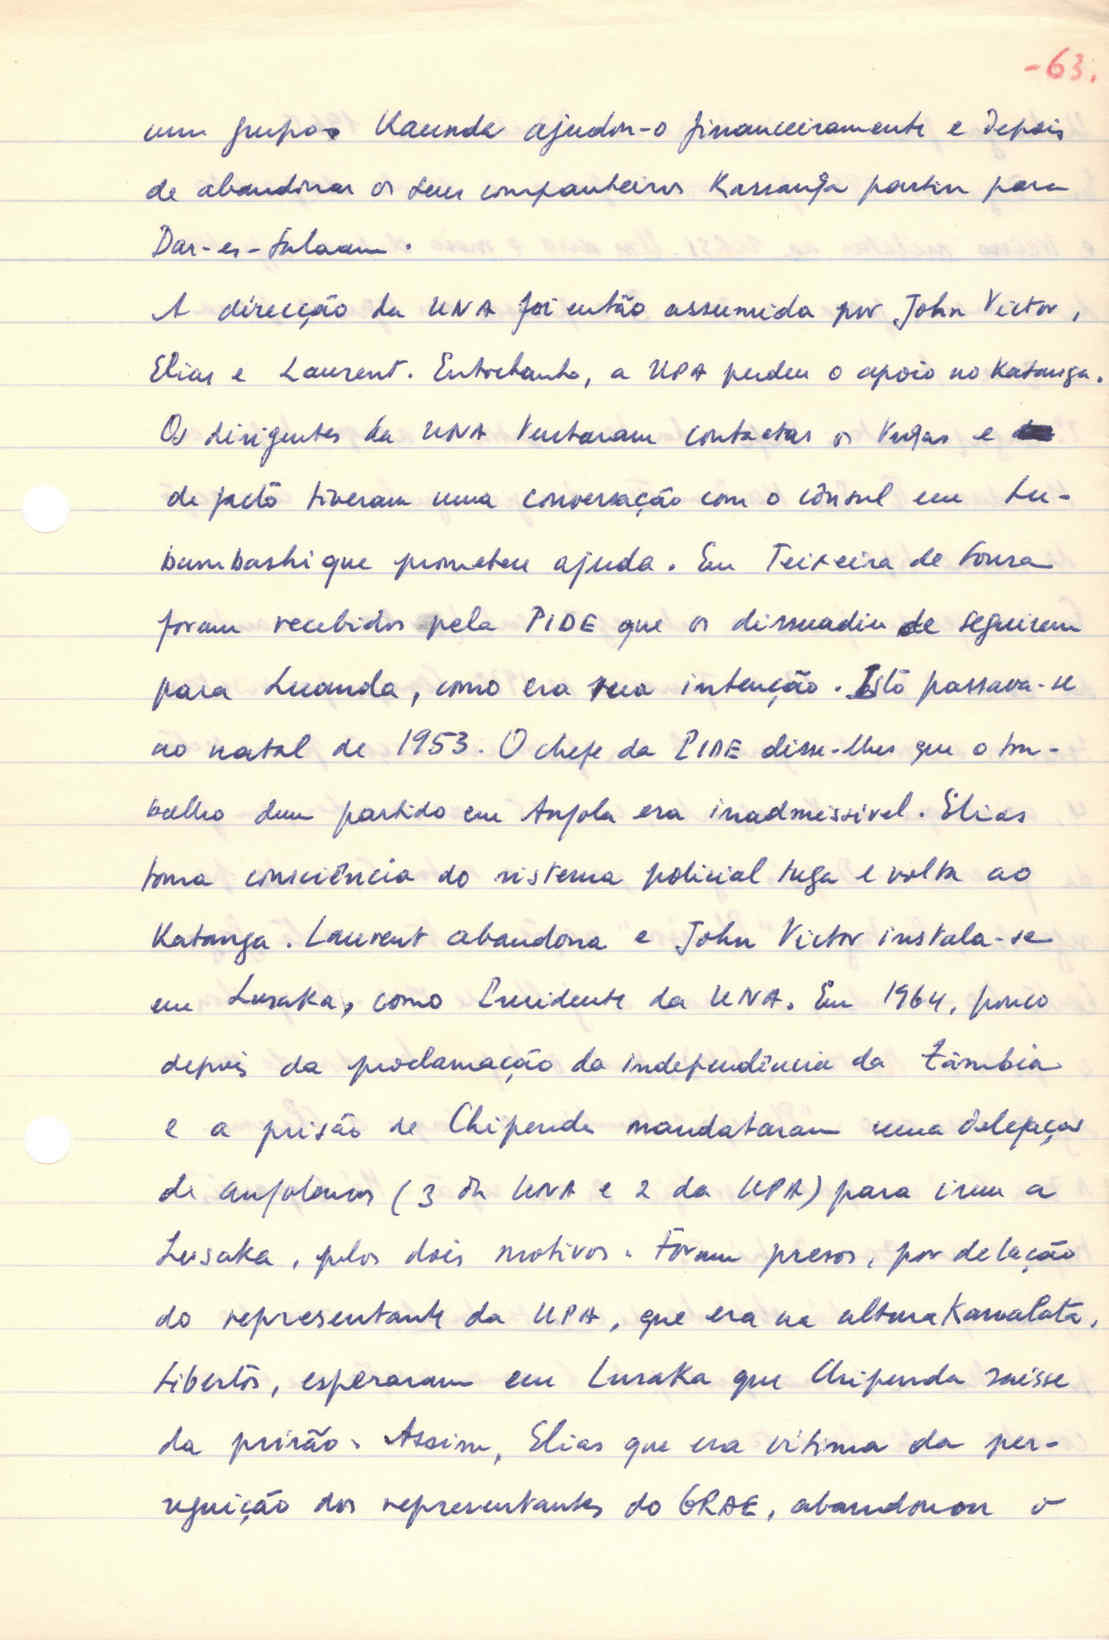 -63.
um grupo. Kaunda ajudou-o financeiramente e depois
de abandonar os seus companheiros Kassanga partiu para
Dar-es-Salaam.
A direcção da UNA foi então assumida por John Victor,
Elias e Laurent. Entretanto, a UPA perdeu o apoio no Katanga.
Os dirigentes da UNA tentaram contactar os tugas e
de facto tiveram uma conversação com o cônsul em Lu-
bumbashi que prometeu ajuda. Em Teixeira de Sousa
foram recebidos pela PIDE que os dissuadiu de seguirem
para Luanda, como era sua intenção. Isto passava-se
no natal de 1953. O chefe da PIDE disse-lhes que o tra-
balho dum partido em Angola era inadmissível. Elias
toma consciência do sistema policial tuga e volta ao
Katanga. Laurent abandona e John Victor instala-se
em Lusaka, como Presidente da UNA. Em 1964, pouco
depois da proclamação da independência da Zâmbia
e a prisão de Chipenda mandataram uma delegação
de angolanos (3 da UNA e 2 da UPA) para irem a
Lusaka, pelos dois motivos. Foram presos, por delação
do representante da UPA, que era na altura
Libertos, esperaram em Lusaka que Chipenda saísse
da prisão. Assim, Elias que era vítima da per-
seguição dos representantes do GRAE, abandonou o